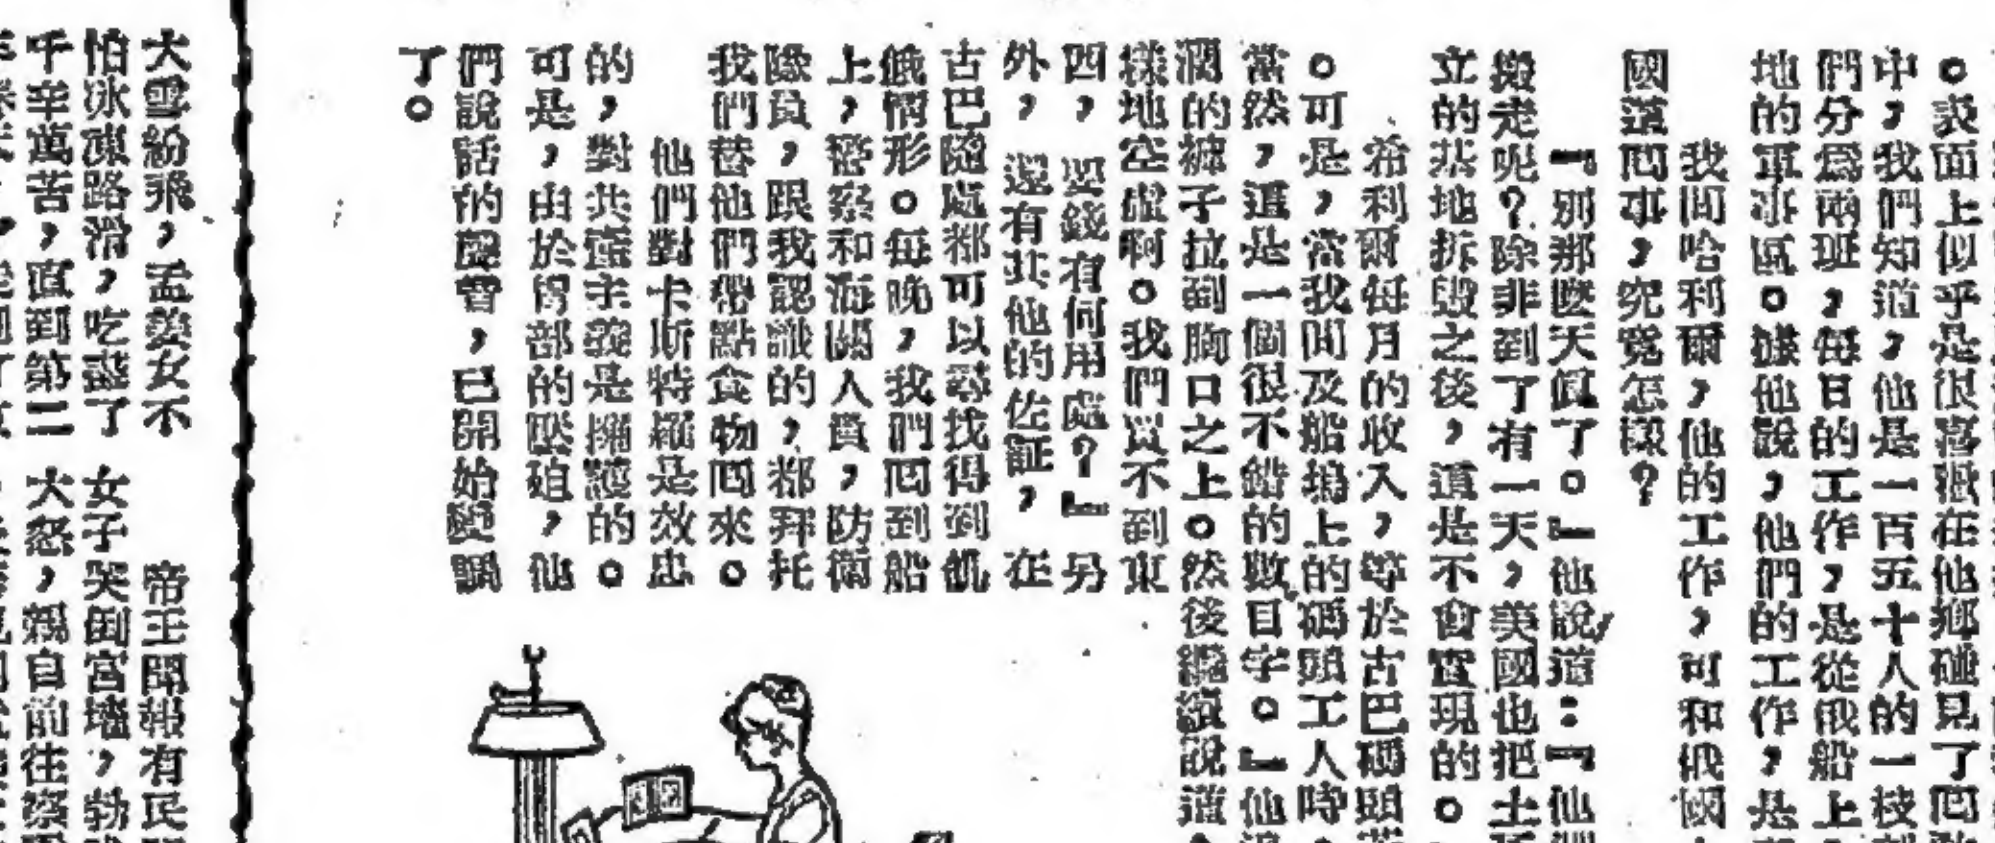 。表面上似乎是很喜歡在他鄉碰見了同
中,我們知道,他是一百五十人的一枝
們分爲兩班,每日的工作,是從俄船上
地的軍事區。據他說,他們的工作,是
我問哈利爾,他的工作,可和俄國
國這囘事,究竟怎樣?
『別那麼天眞了。』他說道:『他
搬走呢?除非到了有一天,美國也把
立的基地拆毀之後,這是不會實現的。
希利爾每月的收入,等於古巴碼頭
。可是,當我問及船塢上的碼頭工人時,
當然,這是一個很不錯的數目字。』他
濶的褲子拉到胸口之上。然後繼續說道
樣地空虛啊。我們買不到東
西,要錢有何用處?』另
外,還有其他的佐証,在
古巴隨處都可以尋找得到飢
餓情形。每晚,我們囘到船
上,警察和海關人員,防衞
隊員,跟我認識的,都拜托
我們替他們帶點食物囘來。
他們對卡斯特羅是效忠
的,對共產主義是擁護的。
可是,由於胃部的壓迫,他
們說話的聲音,已開始變調
了。
大雪紛飛,孟姜女不
怕冰凍路滑,吃盡了
千辛萬苦,直到第二
帝王聞報有民
女子哭倒宮墻,勃
大怒,親自前往察